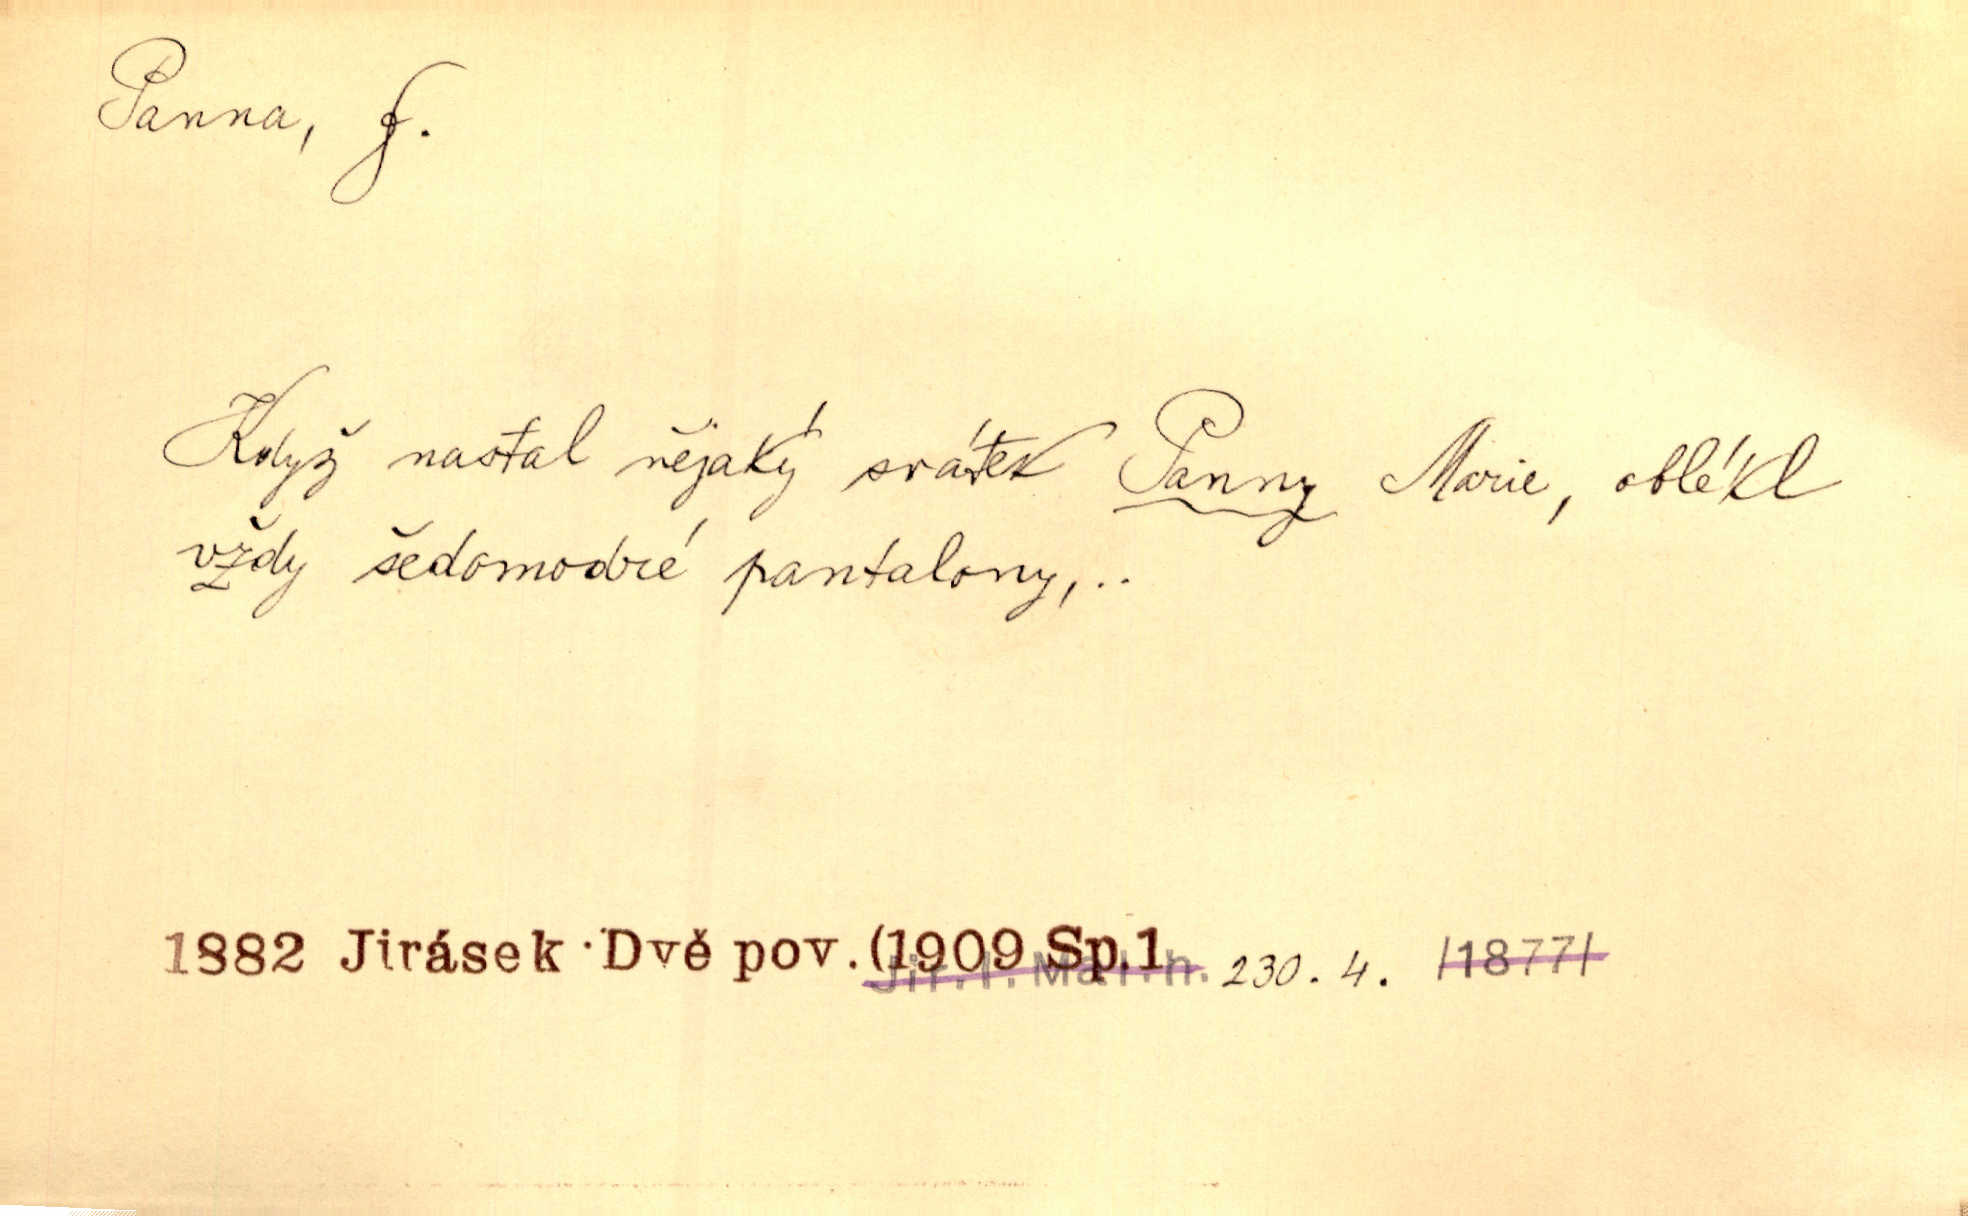 Panna, f.
Když nastal nějaký svátek Panny Marie, oblékl
vždy šedomodré pantalony,..
1882 Jirásek · Dvě pov. (1909 Sp.1 230. 4. /1877/